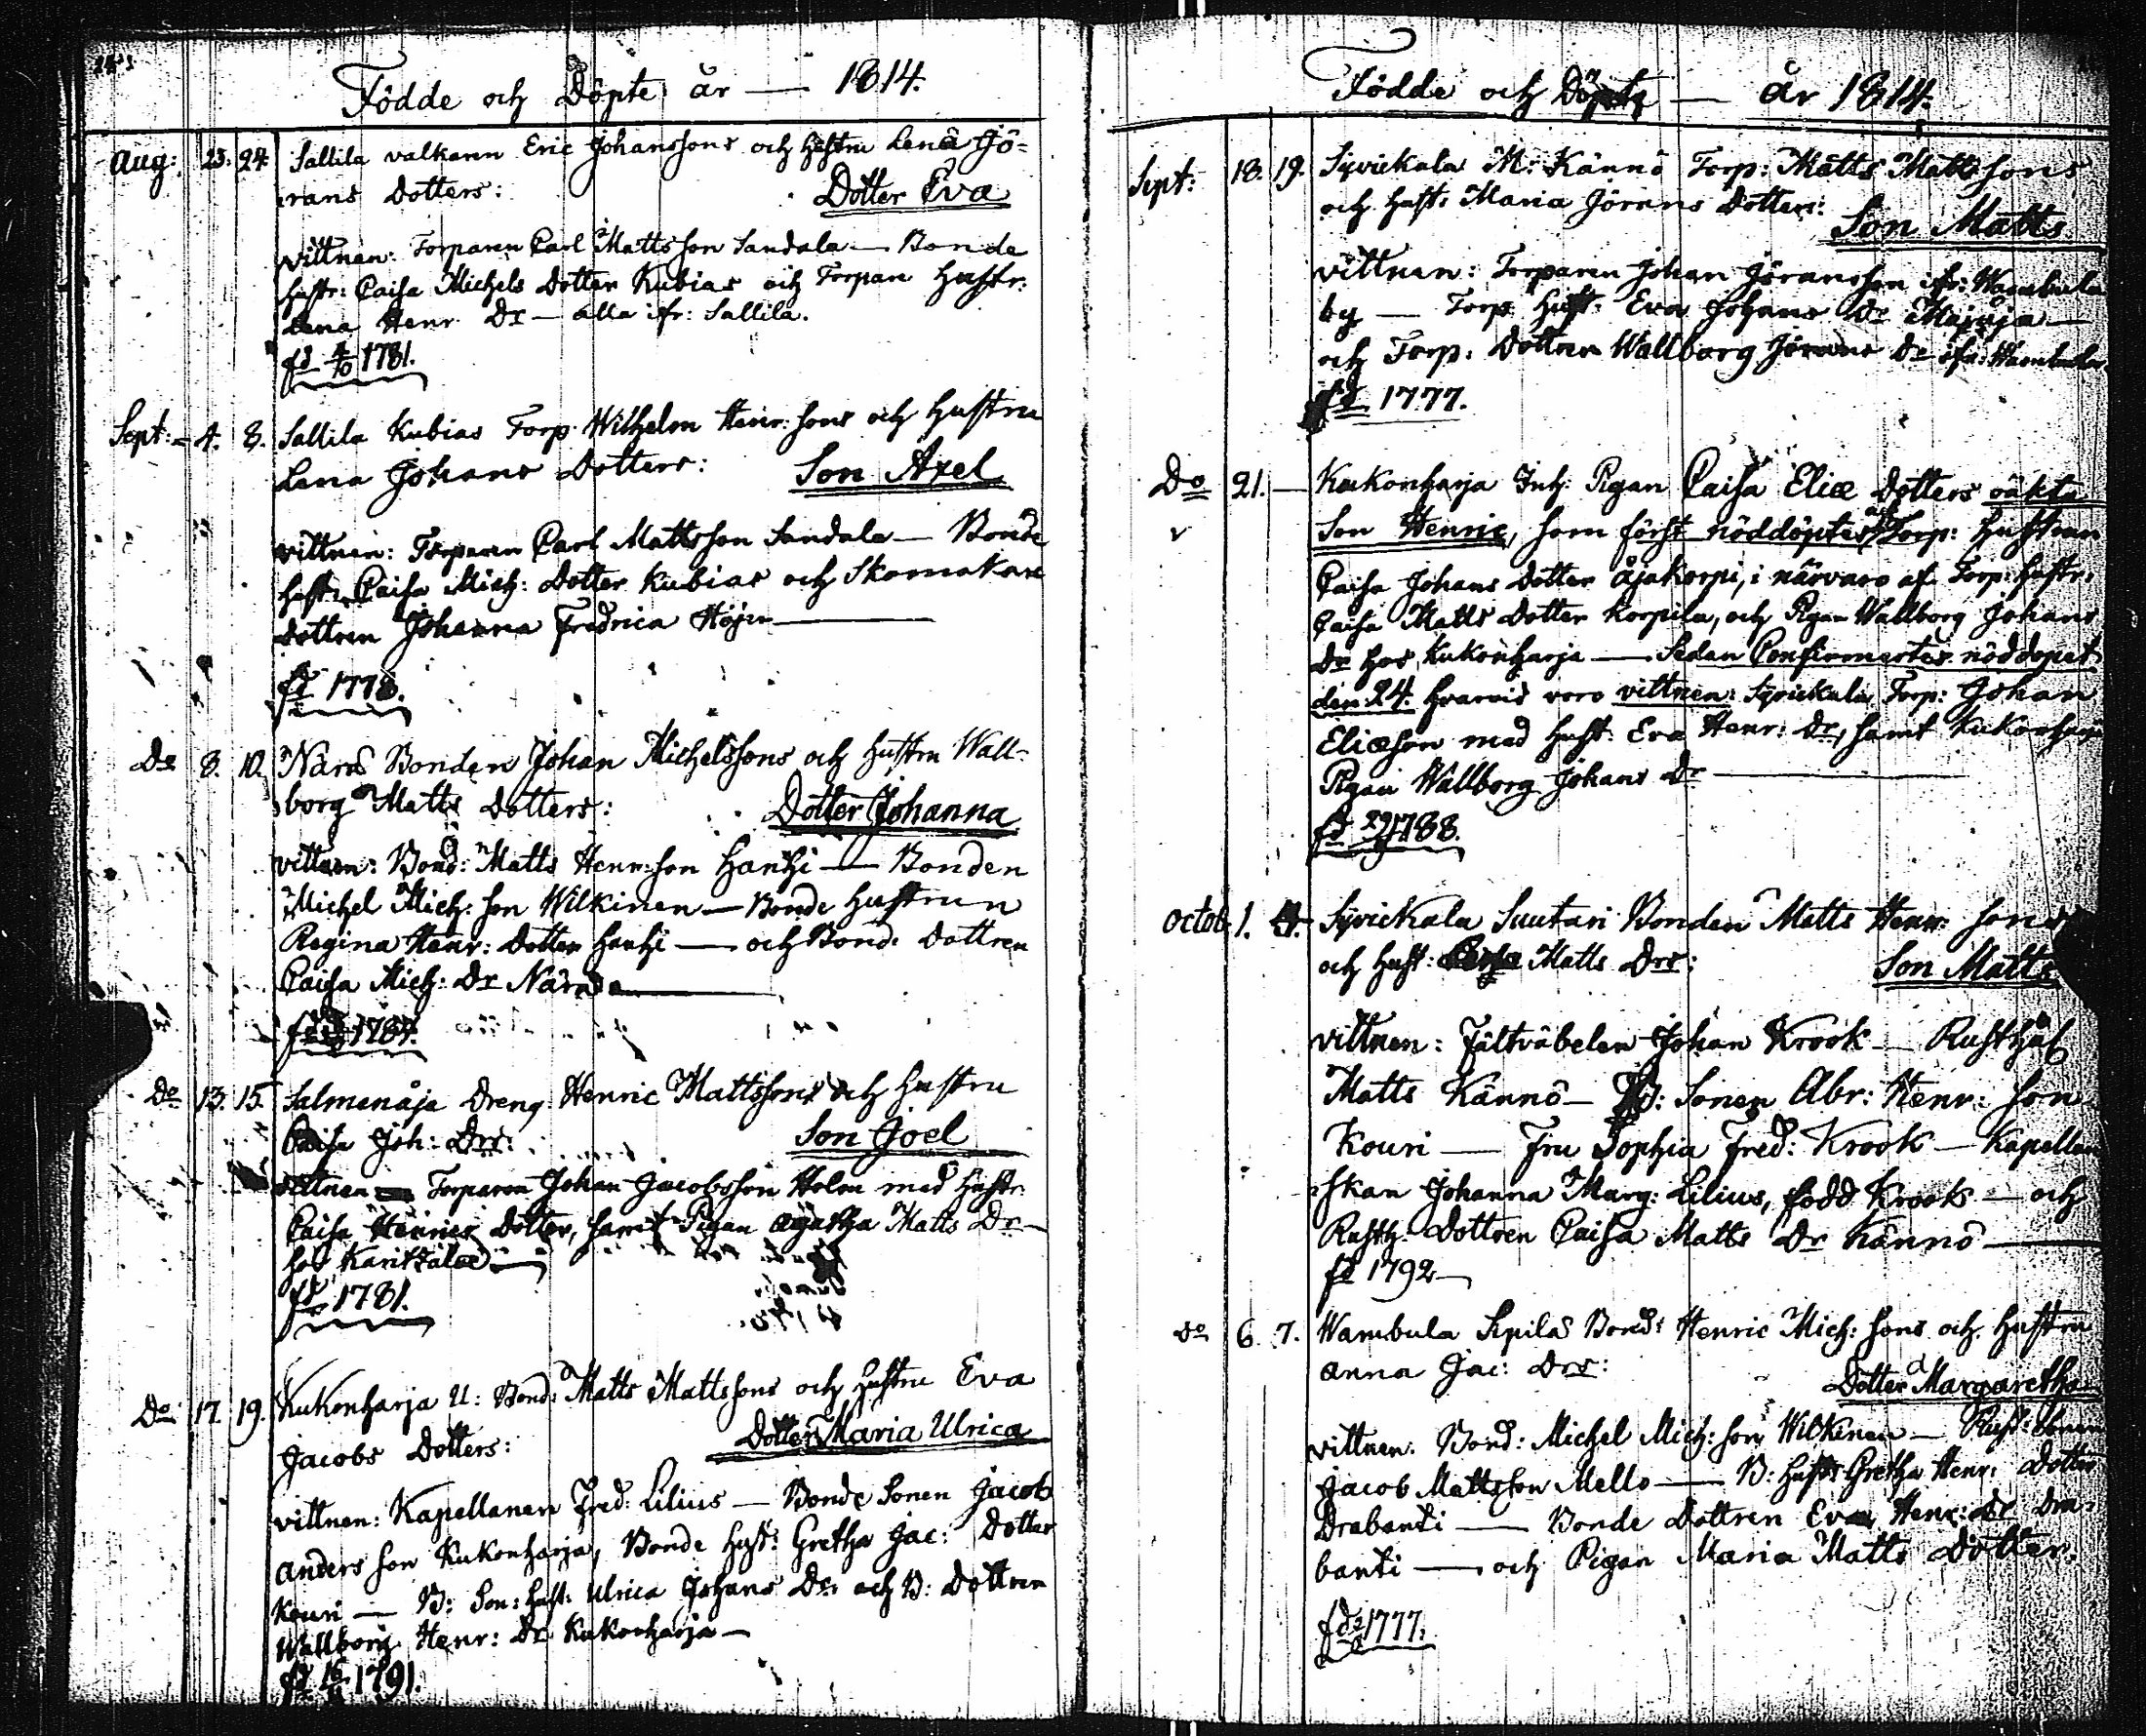 Födde och Döpte år — 1814.
Aug: 23. 24. Sallila valkarn Eric Johanssons och hustru Lena Jö-
rans Dotters: Dotter Eva
vittnen: Torparen Carl Mattsson Sandala — Bonde
hustr: Caisa Michels Dotter Kubias och Torpar Hustr:
Lena Henr: Dr — alla ifr: Sallila.
fd 1781.
Sept: 4. 8. Sallila Kubias Torp. Wilhelm Henr: sons och hustru
Lena Johans Dotters: Son Axel
vittnen: Torparen Carl Mattsson Sandala — Bonde
hustr. Caisa Mich: Dotter Kubias och Skomakare
dottren Johanna Fredrica Höjer
fd 1778.
Do 8. 10. Närvä Bonden Johan Michelssons och hustru Wall-
borg Matts Dotters: Dotter Johanna
vittnen: Bond: Matts Henr: son Hanhi — Bonden
Michel Mich: son Wilkinen — Bonde hustrun
Regina Henr: Dotter Hanhi — och Bond: Dottren
Caisa Mich: Dr
fd 1787.
Do 13. 15. Salmenåja Dreng: Henric Mattssons och hustru
Caisa Joh: Drs: Son Joel
vittnen Torparen Johan Jacobsson Holm med hustr:
Caisa Henrics Dotter, samt Pigan Agatha Matts Dr —
hos
fd 1781.
Do 17. 19. Kukonharja U: Bond: Matts Mattssons och hustru Eva
Jacobs Dotters: Dotter Maria Ulrica
vittnen: Kapellanen Fred: Lilius — Bonde Sonen Jacob
Anders son Kukonharja, Bonde hust: Gretha Jac: Dotter
Kouri — B: Son: hust: Ulrica Johans Dr och B: Dottren
Wallborg Henr: Dr Kukonharja —
fd 1791.
Födde och Döpte — år 1814.
Sept: 18. 19. Syvickala M: Kännö Torp: Matts Matts sons
och hust: Maria Jörans Dotters: Son Matts
vittnen: Torparen Johan Jöransson ifr: Wambula
by — Torp: Hust: Eva Johans Dr —
och Torp: Dottren Wallborg Jörans Dr ifr: Wambula
fd 1777.
Do 21. — Kukonharja Inh: Pigan Caisa Eliæ Dotters oäkta
Son Henric, som först nöddöptes af Torp: hustrun
Caisa Johans Dotter Äjäkorpi, i närvaro af Torp: hustr:
Caisa Matts Dotter Korpila, och Pigan Wallborg Johans
Dr hos Kukonharja — Sedan Confirmertes nöddopet
den 24. hvarvid voro vittnen: Syvickala Torp: Johan
Eliæson med hust: Eva Henr: Dr, samt Kukonharja
Pigan Wallborg Johans Dr
fd 1788.
Octob: 1. Syvickala Suutari Bonden Matts Henr: sons
och hust: Matts Drs: Son Matts
vittnen: Fältväbelen Johan Krook — Rusthål
Matts Kännö — B: Sonen Abr: Henr: son
Kouri — Fru Sophia Fred: Krook — Kapellan
skan Johanna Marg: Lilius, född Krook — och
Rusth: Dottren Caisa Matts Dr Kännö —
fd 1792
Do 6. 7. Wambula Sipilä Bond: Henric Mich: sons och hustru
Anna Jac: Drs: Dotter Margaretha
vittnen. Bond: Michel Mich: son Wilkinen —
Jacob Mattsson Mello — B: hustr Gretha Henr: Dotter
Drabanti — Bonde Dottren Eva Henr: dr Dra-
banti — och Pigan Maria Matts Dotter.
fd 1777.